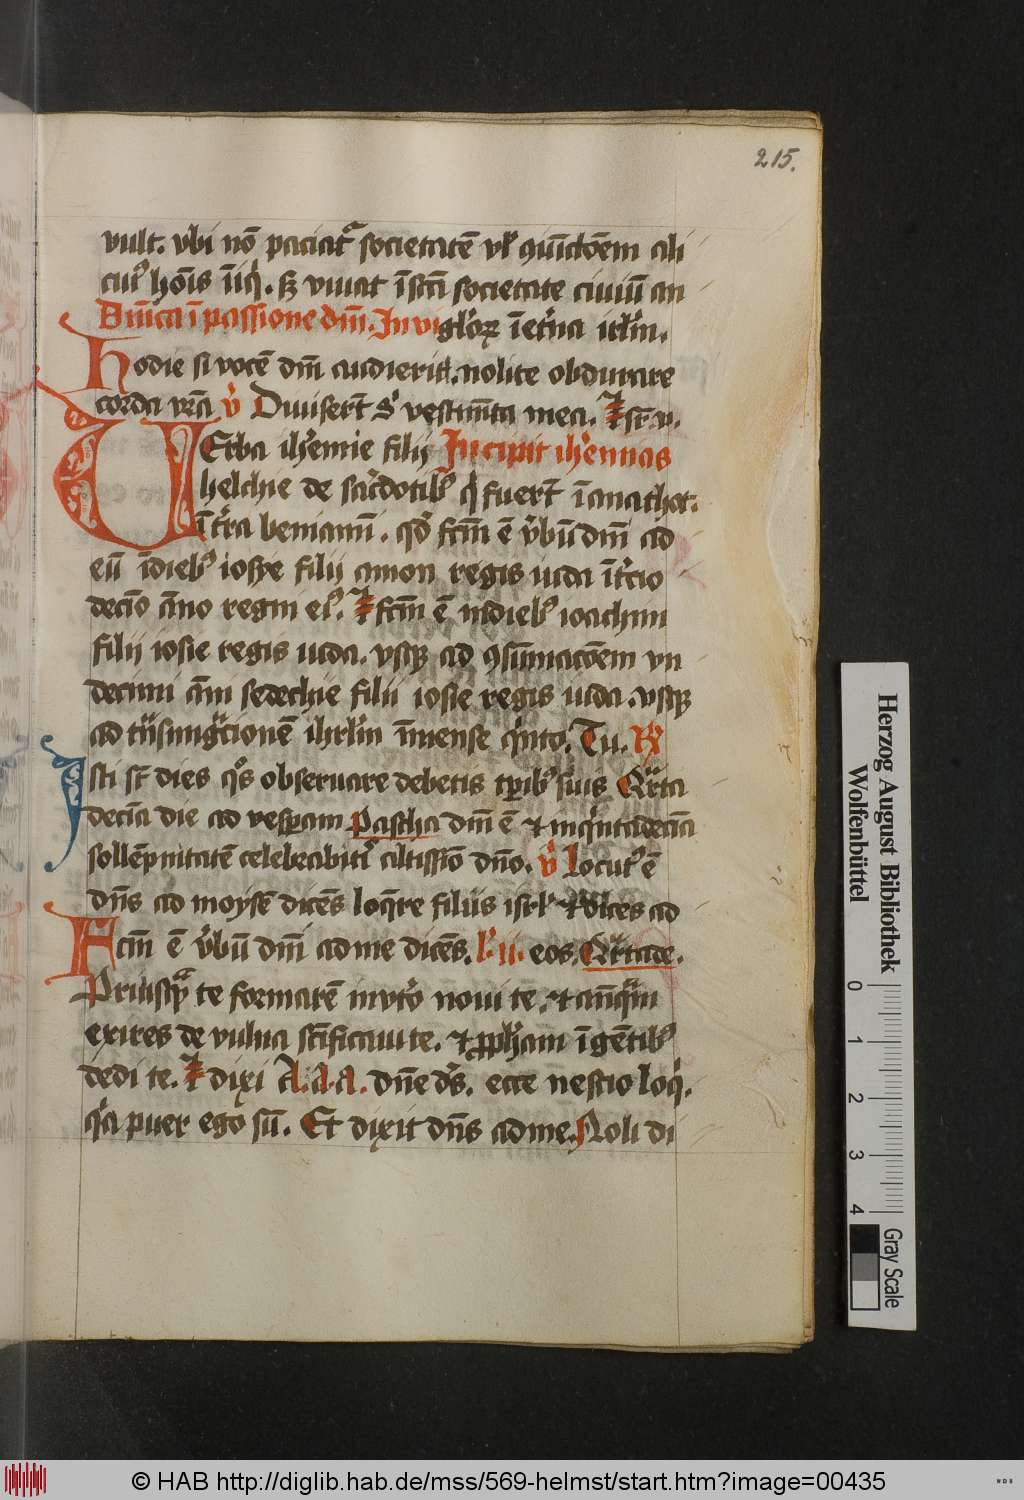 215.
vult. vbi nō paciat᷑ societatē vl᷑ ꝯuīcdōem ali
cui᷑ hoīs īiq̇. sꝫ viuat ī scā societate ciuiū an
Dn̄ica ī passione dn̄i. In vi gl'oꝝ īet'na irl'm.
Hodie si vocē dn̄i audieritꝭ. nolite obdurare
corda vrā v̊ Diuisert̄ s' vestim̄ta mea. ⁊ sr̄ v.
VErba ih'emie filij Incipit ih'emias
helchie de sac'dotibꝰ q' fuert̄ ī anathot.
ī t'ra beniamī. qd' fcm̄ ē v'bū dn̄i ad
eū ī diebꝰ iosye filii amon regis iuda ī t'cio
decīo āno regni eiꝰ. ⁊ fcm̄ ē in diebꝰ ioachim
filij iosie regis iuda. vsqꝫ ad ꝯsūmacōem vn
decimi āni sedechie filii iosie regis iuda. vsqꝫ
ad tn̄smigͣcionē ihrl'm ī mense q'nto. Tu. ℟
Isti sr̄ dies qͦs obseruare debetis tp̄ibꝰ suis Qͣrta
decīa die ad vesꝑam Pascha dn̄i ē ⁊ in q'ntadecīa
sollēpnitatē celebrabitꝭ altissīo dn̄o. v̊ Locutꝰ ē
dn̄s ad moysē dicēs loq̄re filiis isrl' ⁊ dices ad
Fcm̄ ē v'bū dn̄i ad me dicēs. l' ii. eos. Qͣrtade.
Priusqͣ te formarē in vt'o noui te. ⁊ an̄qͣm
exires de vulua sc̄ificaui te. ⁊ ꝓph'am ī gētibꝰ
dedi te. ⁊ dixi A. A. A. dn̄e d's. ecce nescio loq̇.
q'a puer ego sū. Et dixit dn̄s ad me. Noli di
Herzog August Bibliothek
Wolfenbüttel
0 1 2 3 4
Gray Scale
© HAB http://diglib.hab.de/mss/569-helmst/start.htm?image=00435